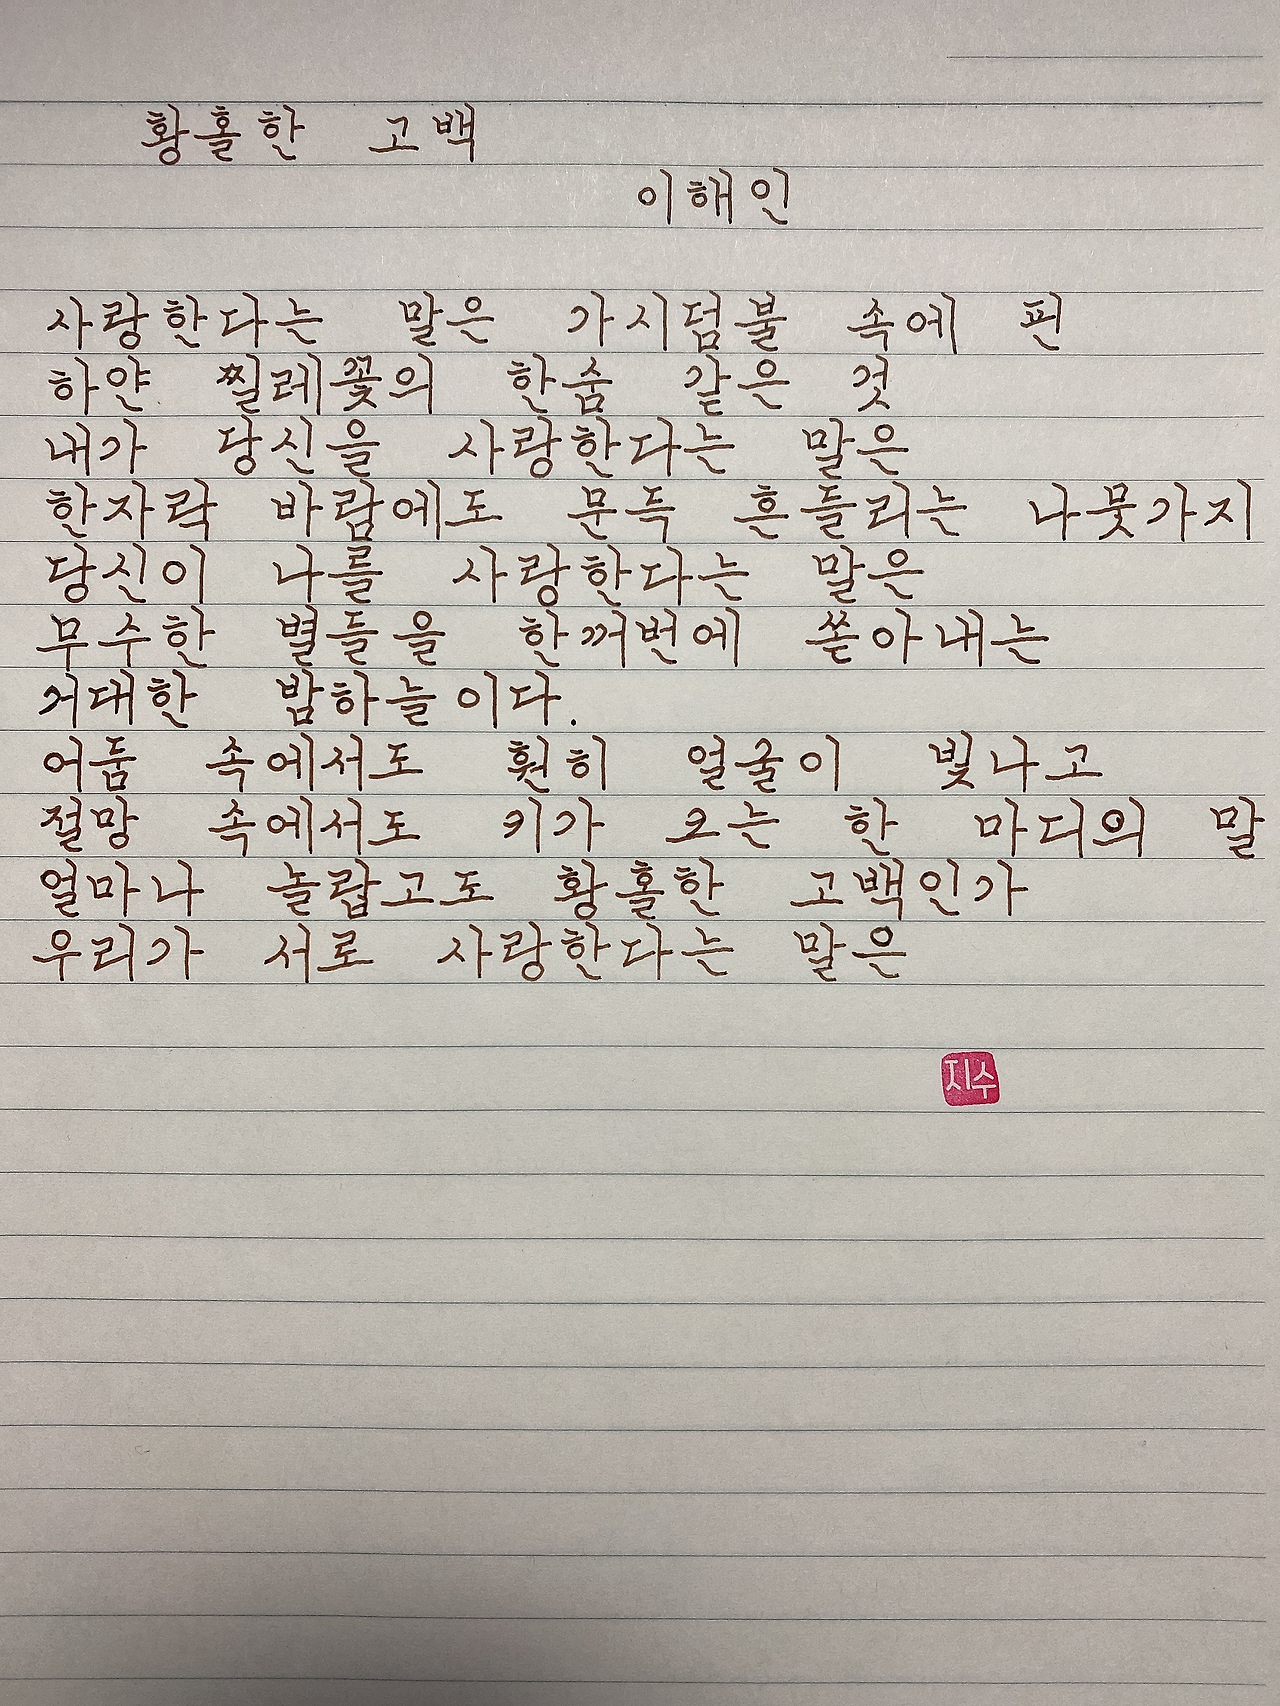 황홀한 고백
이해인
사랑한다는 말은 가시덤불 속에 핀
하얀 찔레꽃의 한숨 같은 것
내가 당신을 사랑한다는 말은
한자락 바람에도 문득 흔들리는 나뭇가지
당신이 나를 사랑한다는 말은
무수한 별들을 한꺼번에 쏟아내는
거대한 밤하늘이다.
어둠 속에서도 훤히 얼굴이 빛나고
절망 속에서도 키가 크는 한 마디의 말
얼마나 놀랍고도 황홀한 고백인가
우리가 서로 사랑한다는 말은
지수